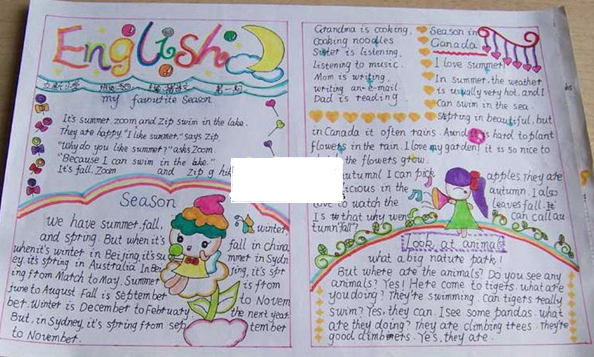 English
my favourite Season
It's summer. zoom and Zip swim in the lake.
They are happy "I like summer." says Zip
"Why do you like summer?" asks Zoom.
"Because I can swim in the lake."
It's fall. Zoom and Zip g
Season
We have summer, fall, winter
and spring. But when it's fall in china,
when it's winter in Beijing, it's summer in Sydn
ey. it's spring in Australia. In Bei ing, it's spr
ing from March to May. Summer is from
june to August Fall is September to Novem
ber. Winter is December to February the next year.
But, in Sydney, it's spring from sep tember
to November.
Grandma is cooking,
Cooking noodles
Sister is listening,
listening to music.
Mom is writing,
writing an e-mail.
Dad is reading
Season in
Canada
I love summer
In summer, the weather
is usually very hot, and I
can swim in the sea.
Spring in beautiful, but
in Canada it often rains. And it is hard to plant
flowers in the rain. I love my garden, it is so nice to
the flowers grow.
autumn! I can pick apples they are
icious in the autumn. I also
love to watch the leaves fall. It
Is that why we can call au
tumn "fall"?
Look at animal
what a big nature park!
But where are the animals? Do you see any
animals? Yes! Here come to tigers. what are
you doing? They're swimming. Can tigers really
swim? Yes, they can. I see some pandas. what
are they doing? They are climbing trees. They're
good climbers. Yes, they are.